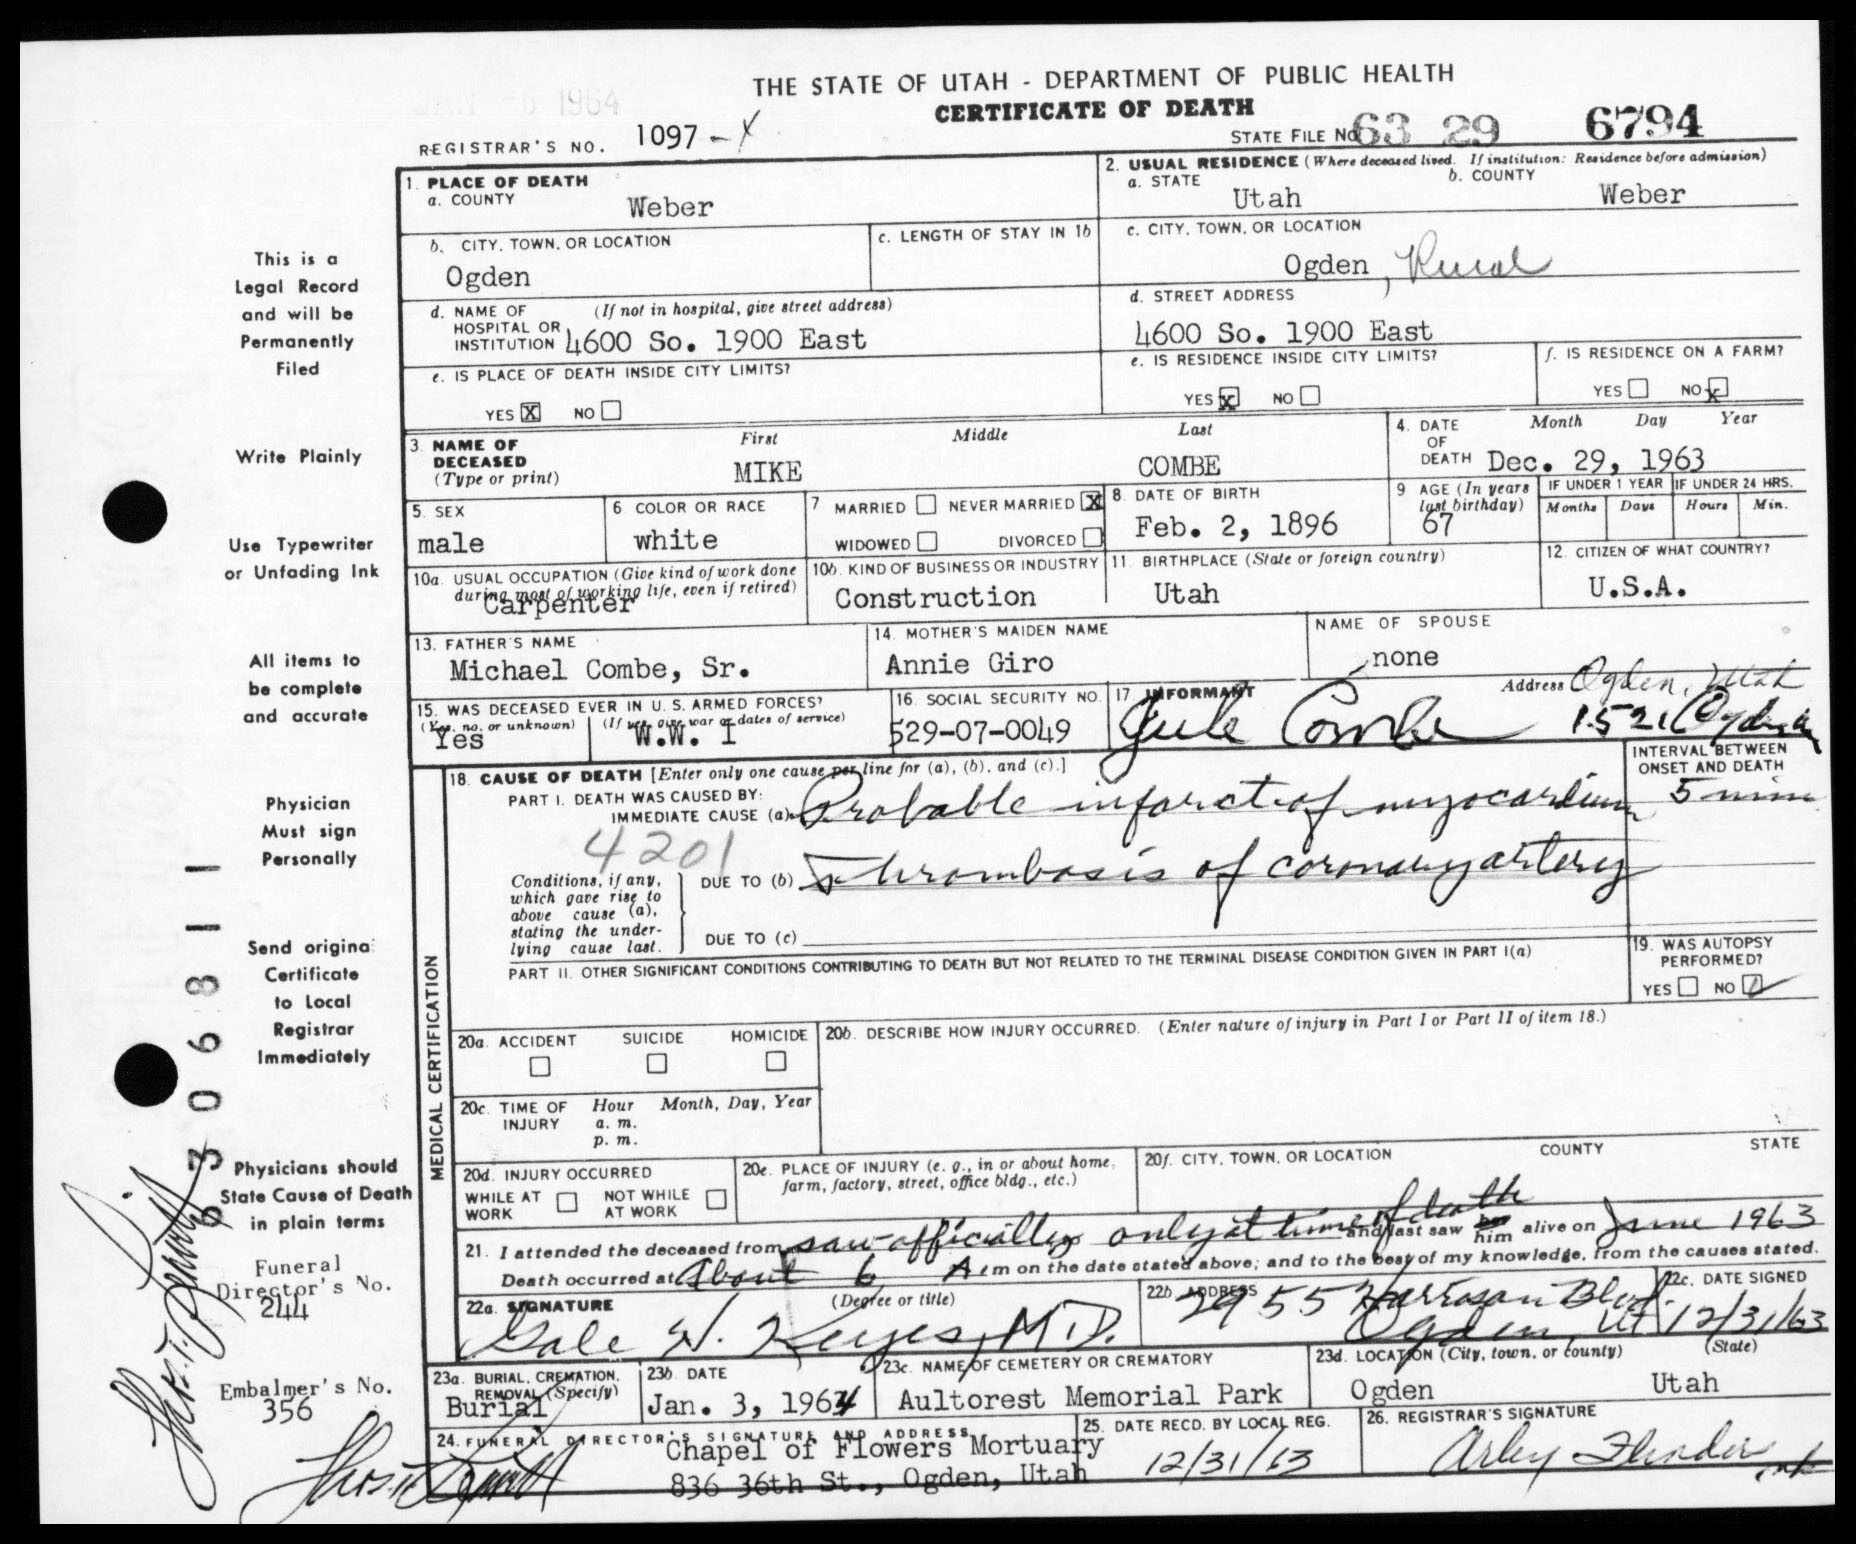 JAN -6 1964
THE STATE OF UTAH - DEPARTMENT OF PUBLIC HEALTH
CERTIFICATE OF DEATH
REGISTRAR'S NO. 1097 -X
STATE FILE NO. 63 29 6794
This is a
Legal Record
and will be
Permanently
Filed
Write Plainly
Use Typewriter
or Unfading Ink
All items to
be complete
and accurate
Physician
Must sign
Personally
Send original
Certificate
to Local
Registrar
Immediately
Physicians should
State Cause of Death
in plain terms
Funeral
Director's No.
244
Embalmer's No.
356
63 06811
1. PLACE OF DEATH
a. COUNTY Weber
2. USUAL RESIDENCE (Where deceased lived. If institution: Residence before admission)
a. STATE Utah b. COUNTY Weber
b. CITY, TOWN, OR LOCATION
Ogden
c. LENGTH OF STAY IN 1b
c. CITY, TOWN, OR LOCATION
Ogden, Rural
d. NAME OF (If not in hospital, give street address)
HOSPITAL OR
INSTITUTION 4600 So. 1900 East
d. STREET ADDRESS
4600 So. 1900 East
e. IS PLACE OF DEATH INSIDE CITY LIMITS?
YES X NO
e. IS RESIDENCE INSIDE CITY LIMITS?
YES X NO
f. IS RESIDENCE ON A FARM?
YES NO X
3. NAME OF First Middle Last
DECEASED
(Type or print) MIKE COMBE
4. DATE Month Day Year
OF
DEATH Dec. 29, 1963
5. SEX
male
6 COLOR OR RACE
white
7 MARRIED NEVER MARRIED X
WIDOWED DIVORCED
8. DATE OF BIRTH
Feb. 2, 1896
9 AGE (In years
last birthday)
67
IF UNDER 1 YEAR IF UNDER 24 HRS.
Months Days Hours Min.
10a. USUAL OCCUPATION (Give kind of work done
during most of working life, even if retired)
Carpenter
10b. KIND OF BUSINESS OR INDUSTRY
Construction
11. BIRTHPLACE (State or foreign country)
Utah
12. CITIZEN OF WHAT COUNTRY?
U.S.A.
13. FATHER'S NAME
Michael Combe, Sr.
14. MOTHER'S MAIDEN NAME
Annie Giro
NAME OF SPOUSE
none
15. WAS DECEASED EVER IN U. S. ARMED FORCES?
(Yes, no, or unknown) (If yes, give war or dates of service)
Yes W.W. I
16. SOCIAL SECURITY NO.
529-07-0049
17 INFORMANT Address Ogden, Utah
Jule Combe 1521 Ogden
18. CAUSE OF DEATH [Enter only one cause per line for (a), (b), and (c).]
INTERVAL BETWEEN
ONSET AND DEATH
PART I. DEATH WAS CAUSED BY:
IMMEDIATE CAUSE (a) Probable infarct of myocardium 5 min
4201
Conditions, if any,
which gave rise to
above cause (a),
stating the under-
lying cause last.
DUE TO (b) Thrombosis of coronary artery
DUE TO (c)
PART II. OTHER SIGNIFICANT CONDITIONS CONTRIBUTING TO DEATH BUT NOT RELATED TO THE TERMINAL DISEASE CONDITION GIVEN IN PART I(a)
19. WAS AUTOPSY
PERFORMED?
YES NO
MEDICAL CERTIFICATION
20a. ACCIDENT SUICIDE HOMICIDE
20b. DESCRIBE HOW INJURY OCCURRED. (Enter nature of injury in Part I or Part II of item 18.)
20c. TIME OF Hour Month, Day, Year
INJURY a. m.
p. m.
20d. INJURY OCCURRED
WHILE AT WORK NOT WHILE AT WORK
20e. PLACE OF INJURY (e. g., in or about home,
farm, factory, street, office bldg., etc.)
20f. CITY, TOWN, OR LOCATION COUNTY STATE
21. I attended the deceased from saw officially only at time of death and last saw her him alive on June 1963
Death occurred at About 6 A m on the date stated above; and to the best of my knowledge, from the causes stated.
22a. SIGNATURE (Degree or title)
Gale W. Keyes, M.D.
22b. ADDRESS
2955 Harrison Blvd.
Ogden, Ut
22c. DATE SIGNED
12/31/63
23a. BURIAL, CREMATION,
REMOVAL (Specify)
Burial
23b. DATE
Jan. 3, 1964
23c. NAME OF CEMETERY OR CREMATORY
Aultorest Memorial Park
23d. LOCATION (City, town, or county) (State)
Ogden Utah
24. FUNERAL DIRECTOR'S SIGNATURE AND ADDRESS
Chapel of Flowers Mortuary
836 36th St., Ogden, Utah
25. DATE RECD. BY LOCAL REG.
12/31/63
26. REGISTRAR'S SIGNATURE